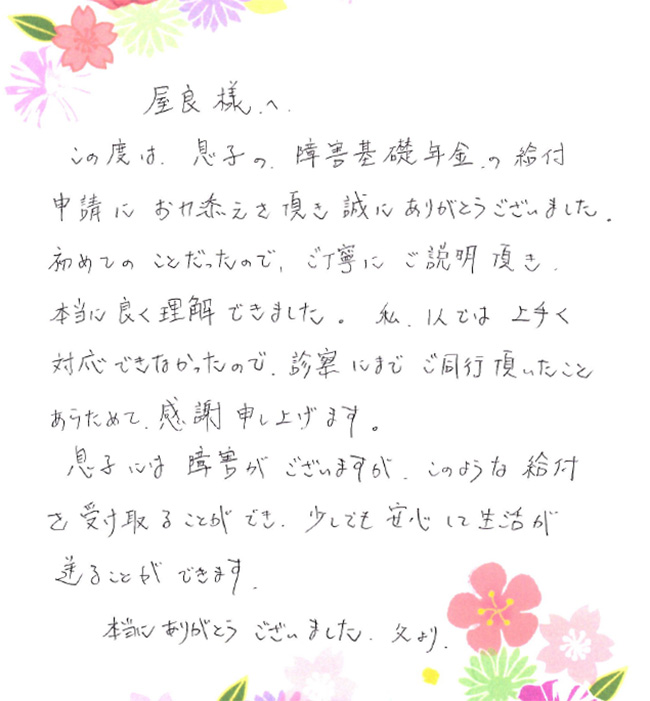 屋良様へ
この度は、息子の、障害基礎年金の給付
申請にお力添えを頂き誠にありがとうございました。
初めてのことだったので、ご丁寧にご説明頂き、
本当に良く理解できました。私、1人では上手く
対応できなかったので、診察にまでご同行頂いたこと
あらためて、感謝申し上げます。
息子には障害がございますが、このような給付
を受け取ることができ、少しでも安心して生活が
送ることができます。
本当にありがとうございました。父より。